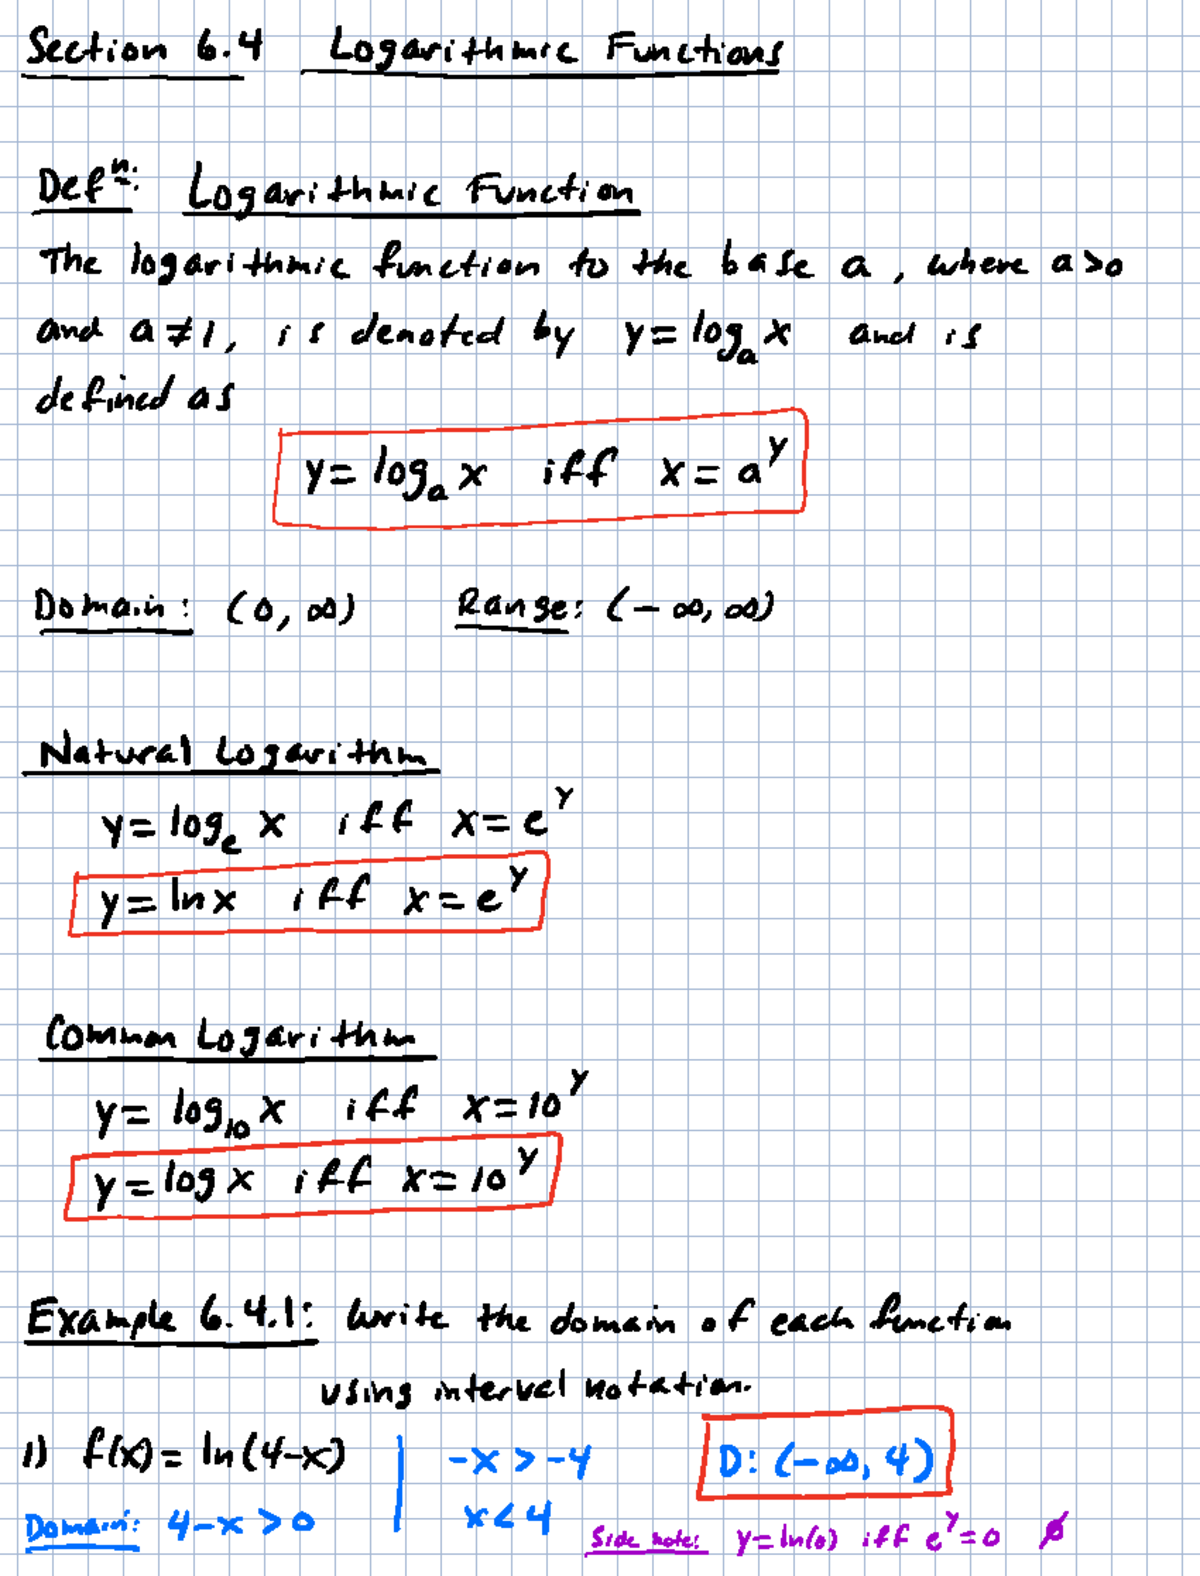 Section 6.4 Logarithmic Functions
Defⁿ: Logarithmic Function
The logarithmic function to the base a, where a>0
and a≠1, is denoted by y = logₐ x and is
defined as
y = logₐ x iff x = a^y
Domain: (0, ∞) Range: (-∞, ∞)
Natural Logarithm
y = logₑ x iff x = e^y
y = ln x iff x = e^y
Common Logarithm
y = log₁₀ x iff x = 10^y
y = log x iff x = 10^y
Example 6.4.1: Write the domain of each function
using interval notation.
1) f(x) = ln(4-x) | -x > -4 D: (-∞, 4)
Domain: 4-x > 0 | x < 4
Side note: y = ln(0) iff e^y = 0 ∅